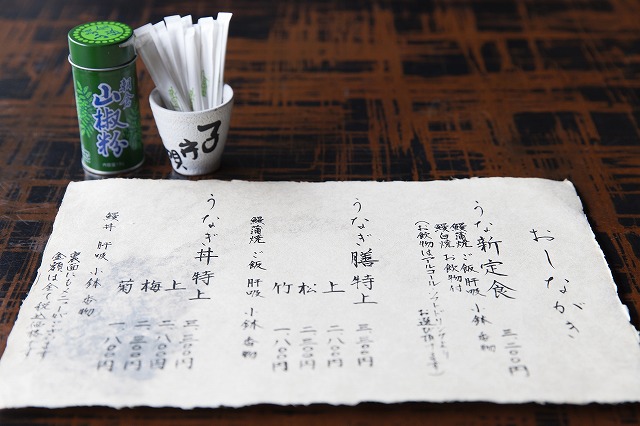 おしながき
うなぎ新定食 三二〇〇円
鰻蒲焼 ご飯 肝吸 小鉢 香物
鰻白焼 お飲物付
(お飲物はアルコール・ソフトドリンクより
お選び頂けます)
うなぎ膳 特上 三三〇〇円
上 二八〇〇円
松 二三〇〇円
竹 一八〇〇円
鰻蒲焼 ご飯 肝吸 小鉢 香物
うなぎ丼 特上 三三〇〇円
上 二八〇〇円
梅 二三〇〇円
菊 一八〇〇円
鰻丼 肝吸 小鉢 香物
裏面にもメニューがございます
金額は全て税込価格です
朝倉
山椒粉